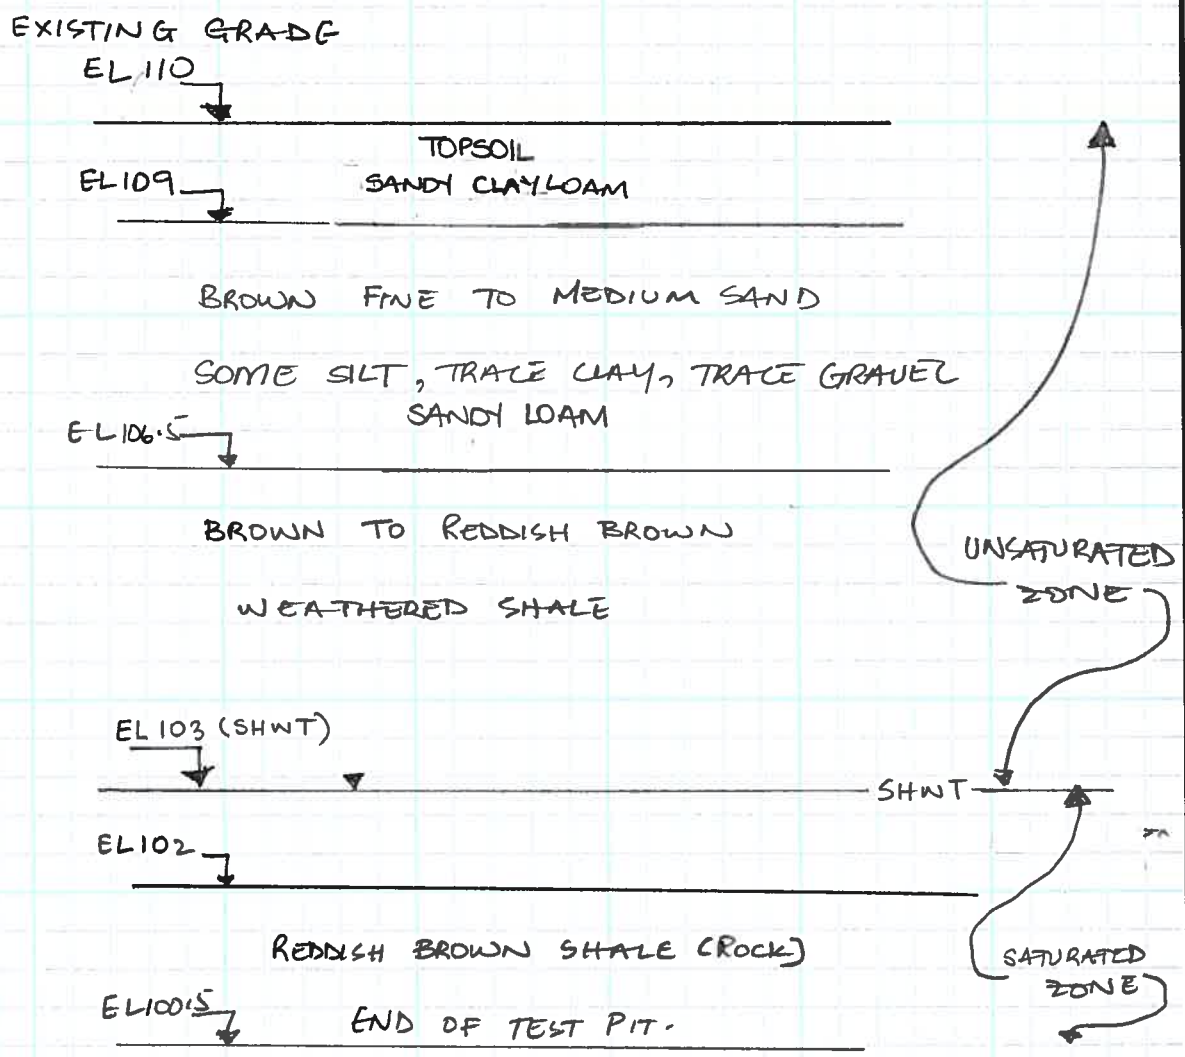 EXISTING GRADE
EL 110
TOPSOIL
EL109
SANDY CLAY LOAM
BROWN FINE TO MEDIUM SAND
SOME SILT, TRACE CLAY, TRACE GRAVEL
SANDY LOAM
EL106.5
BROWN TO REDDISH BROWN
UNSATURATED
ZONE
WEATHERED SHALE
EL103 (SHWT)
SHWT
EL102
REDDISH BROWN SHALE (ROCK)
SATURATED
ZONE
EL100.5
END OF TEST PIT.